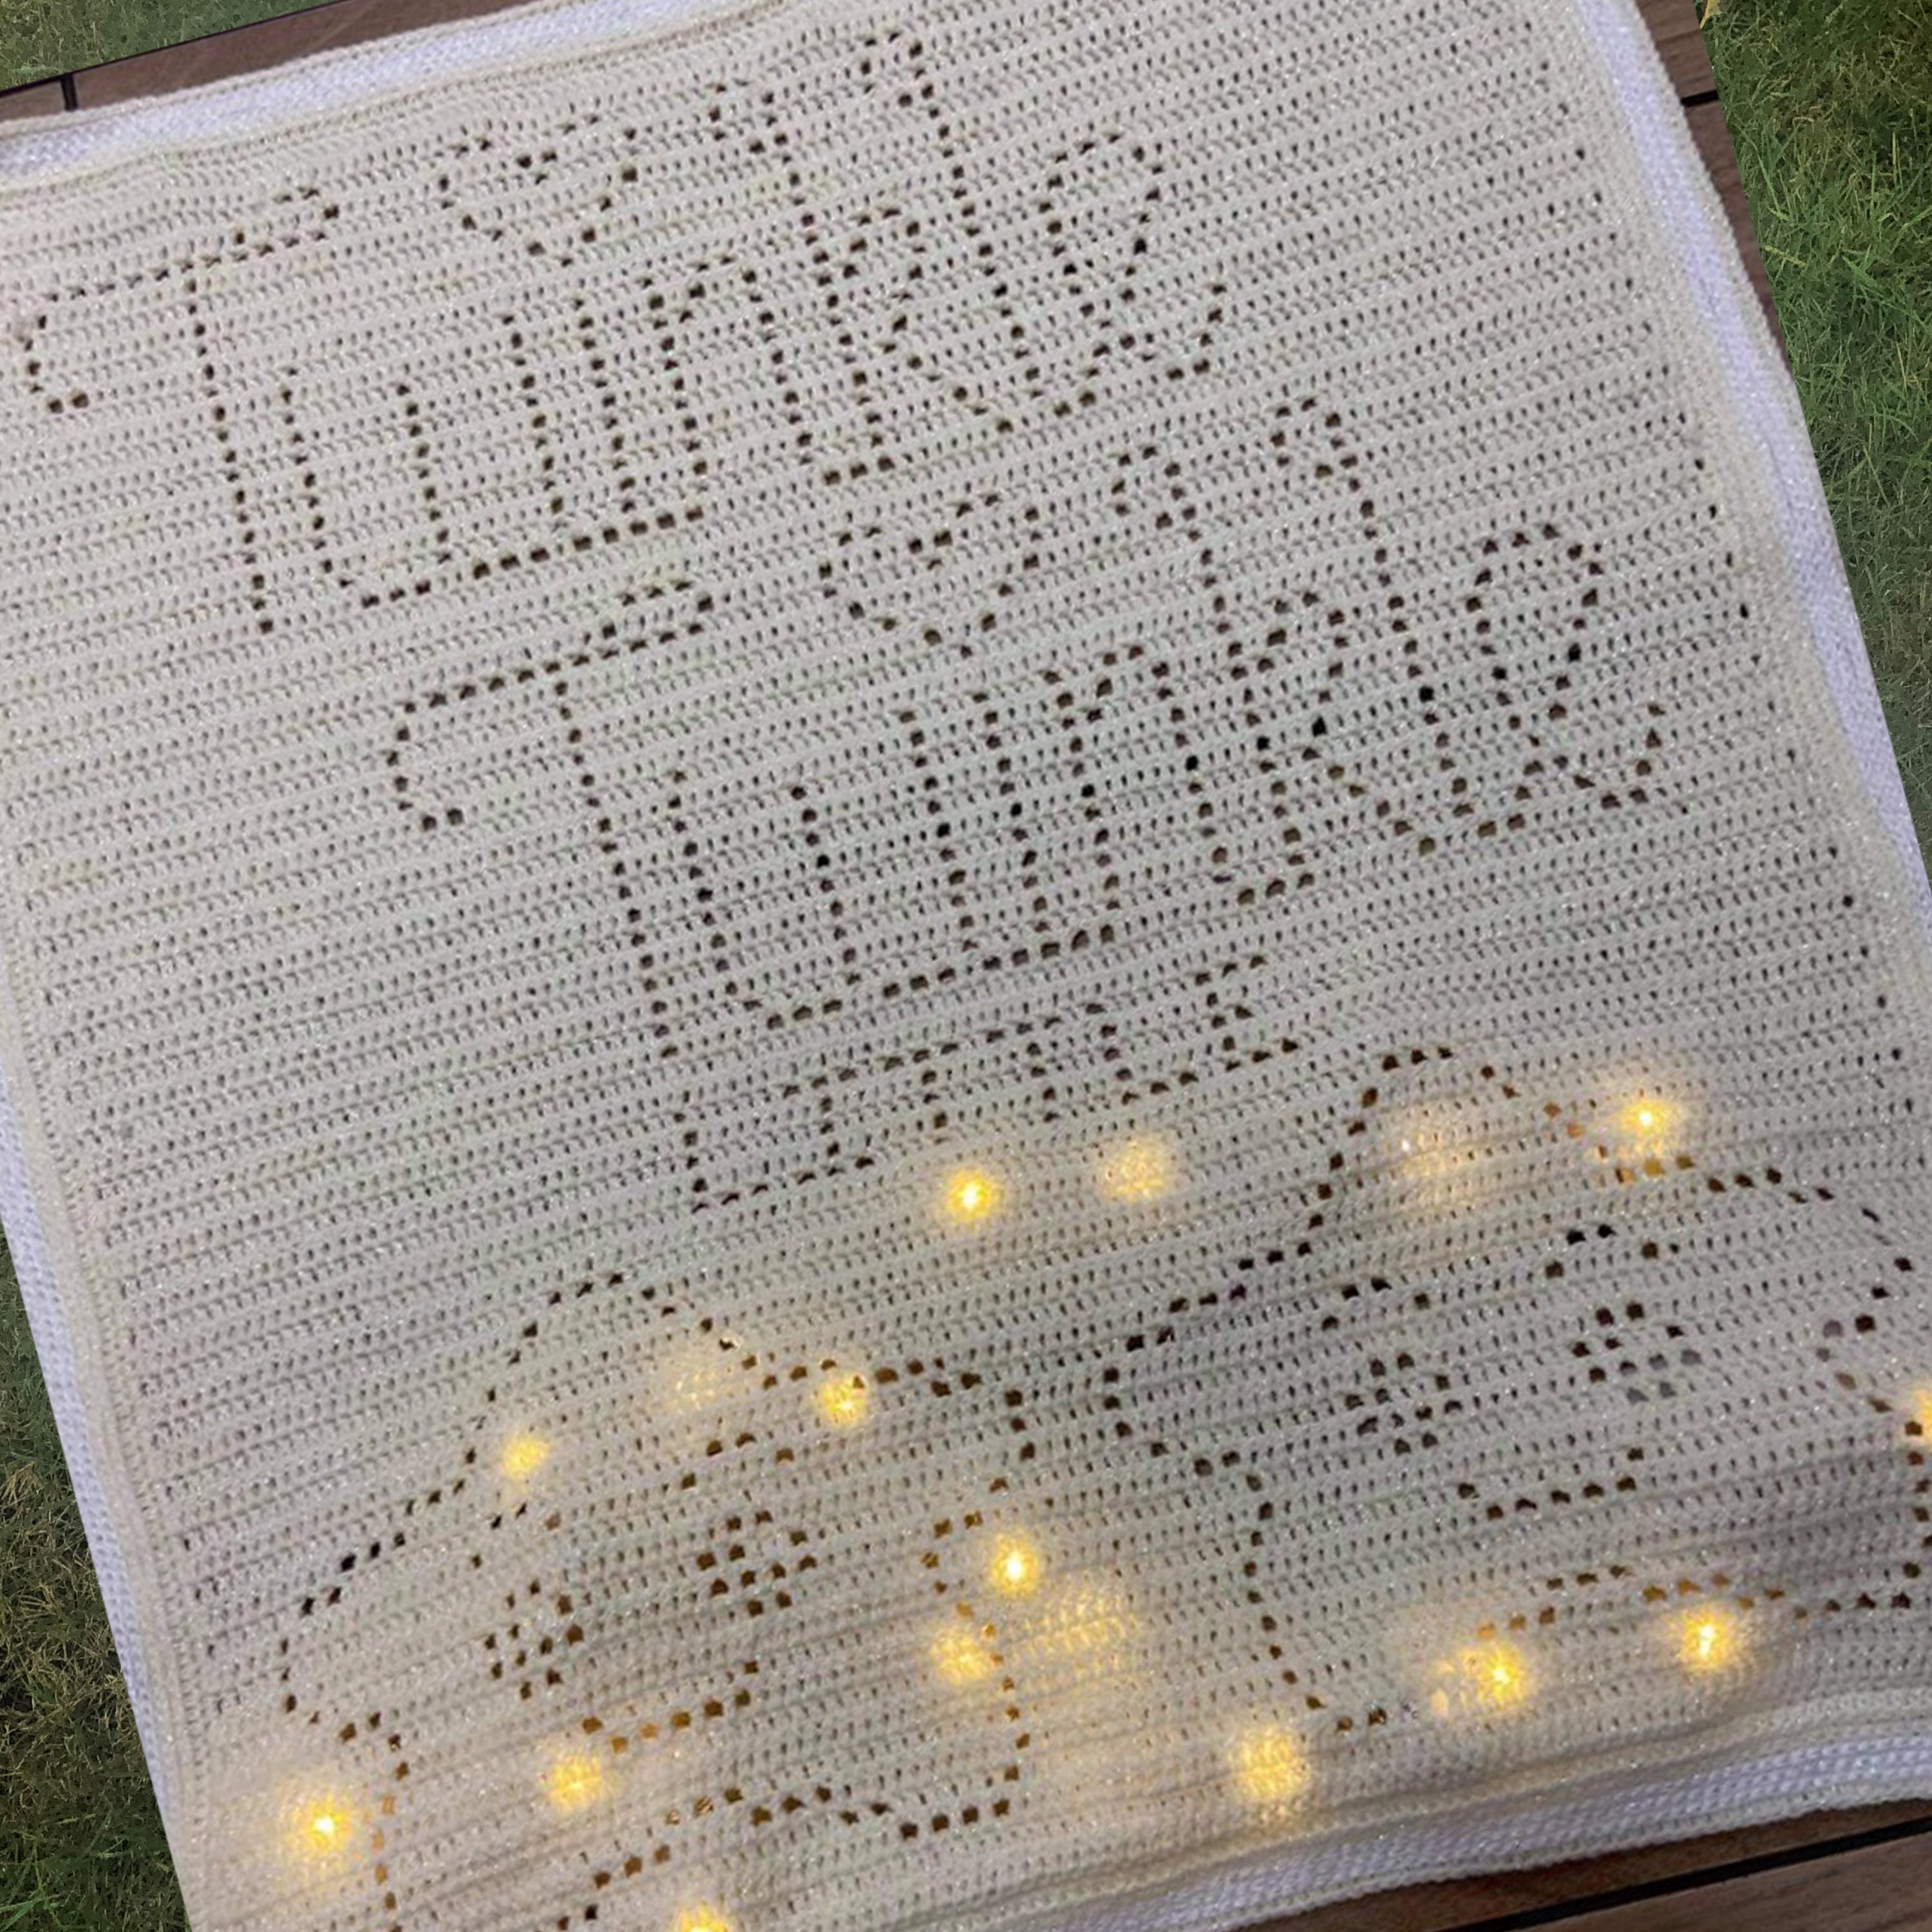 Twinkle
Twinkle
LITTLE